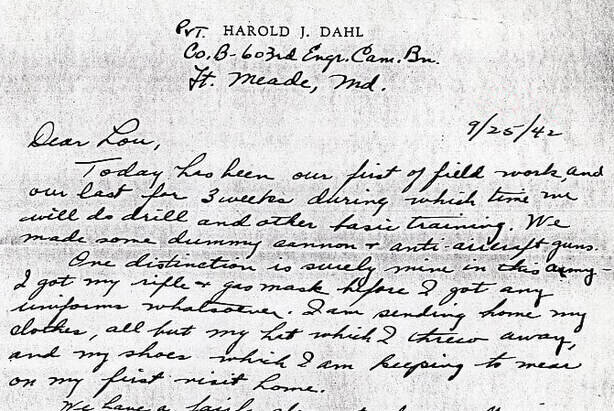 Pvt. HAROLD J. DAHL
Co. B - 603rd Engr. Cam. Bn.
Ft. Meade, Md.
9/25/42
Dear Lou,
Today has been our first of field work and
our last for 3 weeks during which time we
will do drill and other basic training. We
made some dummy cannon + anti-aircraft guns.
One distinction is surely mine in this army -
I got my rifle + gas mask before I got any
uniforms whatsoever. I am sending home my
clothes, all but my hat which I threw away,
and my shoes which I am keeping to wear
on my first visit home.
We have a fairly